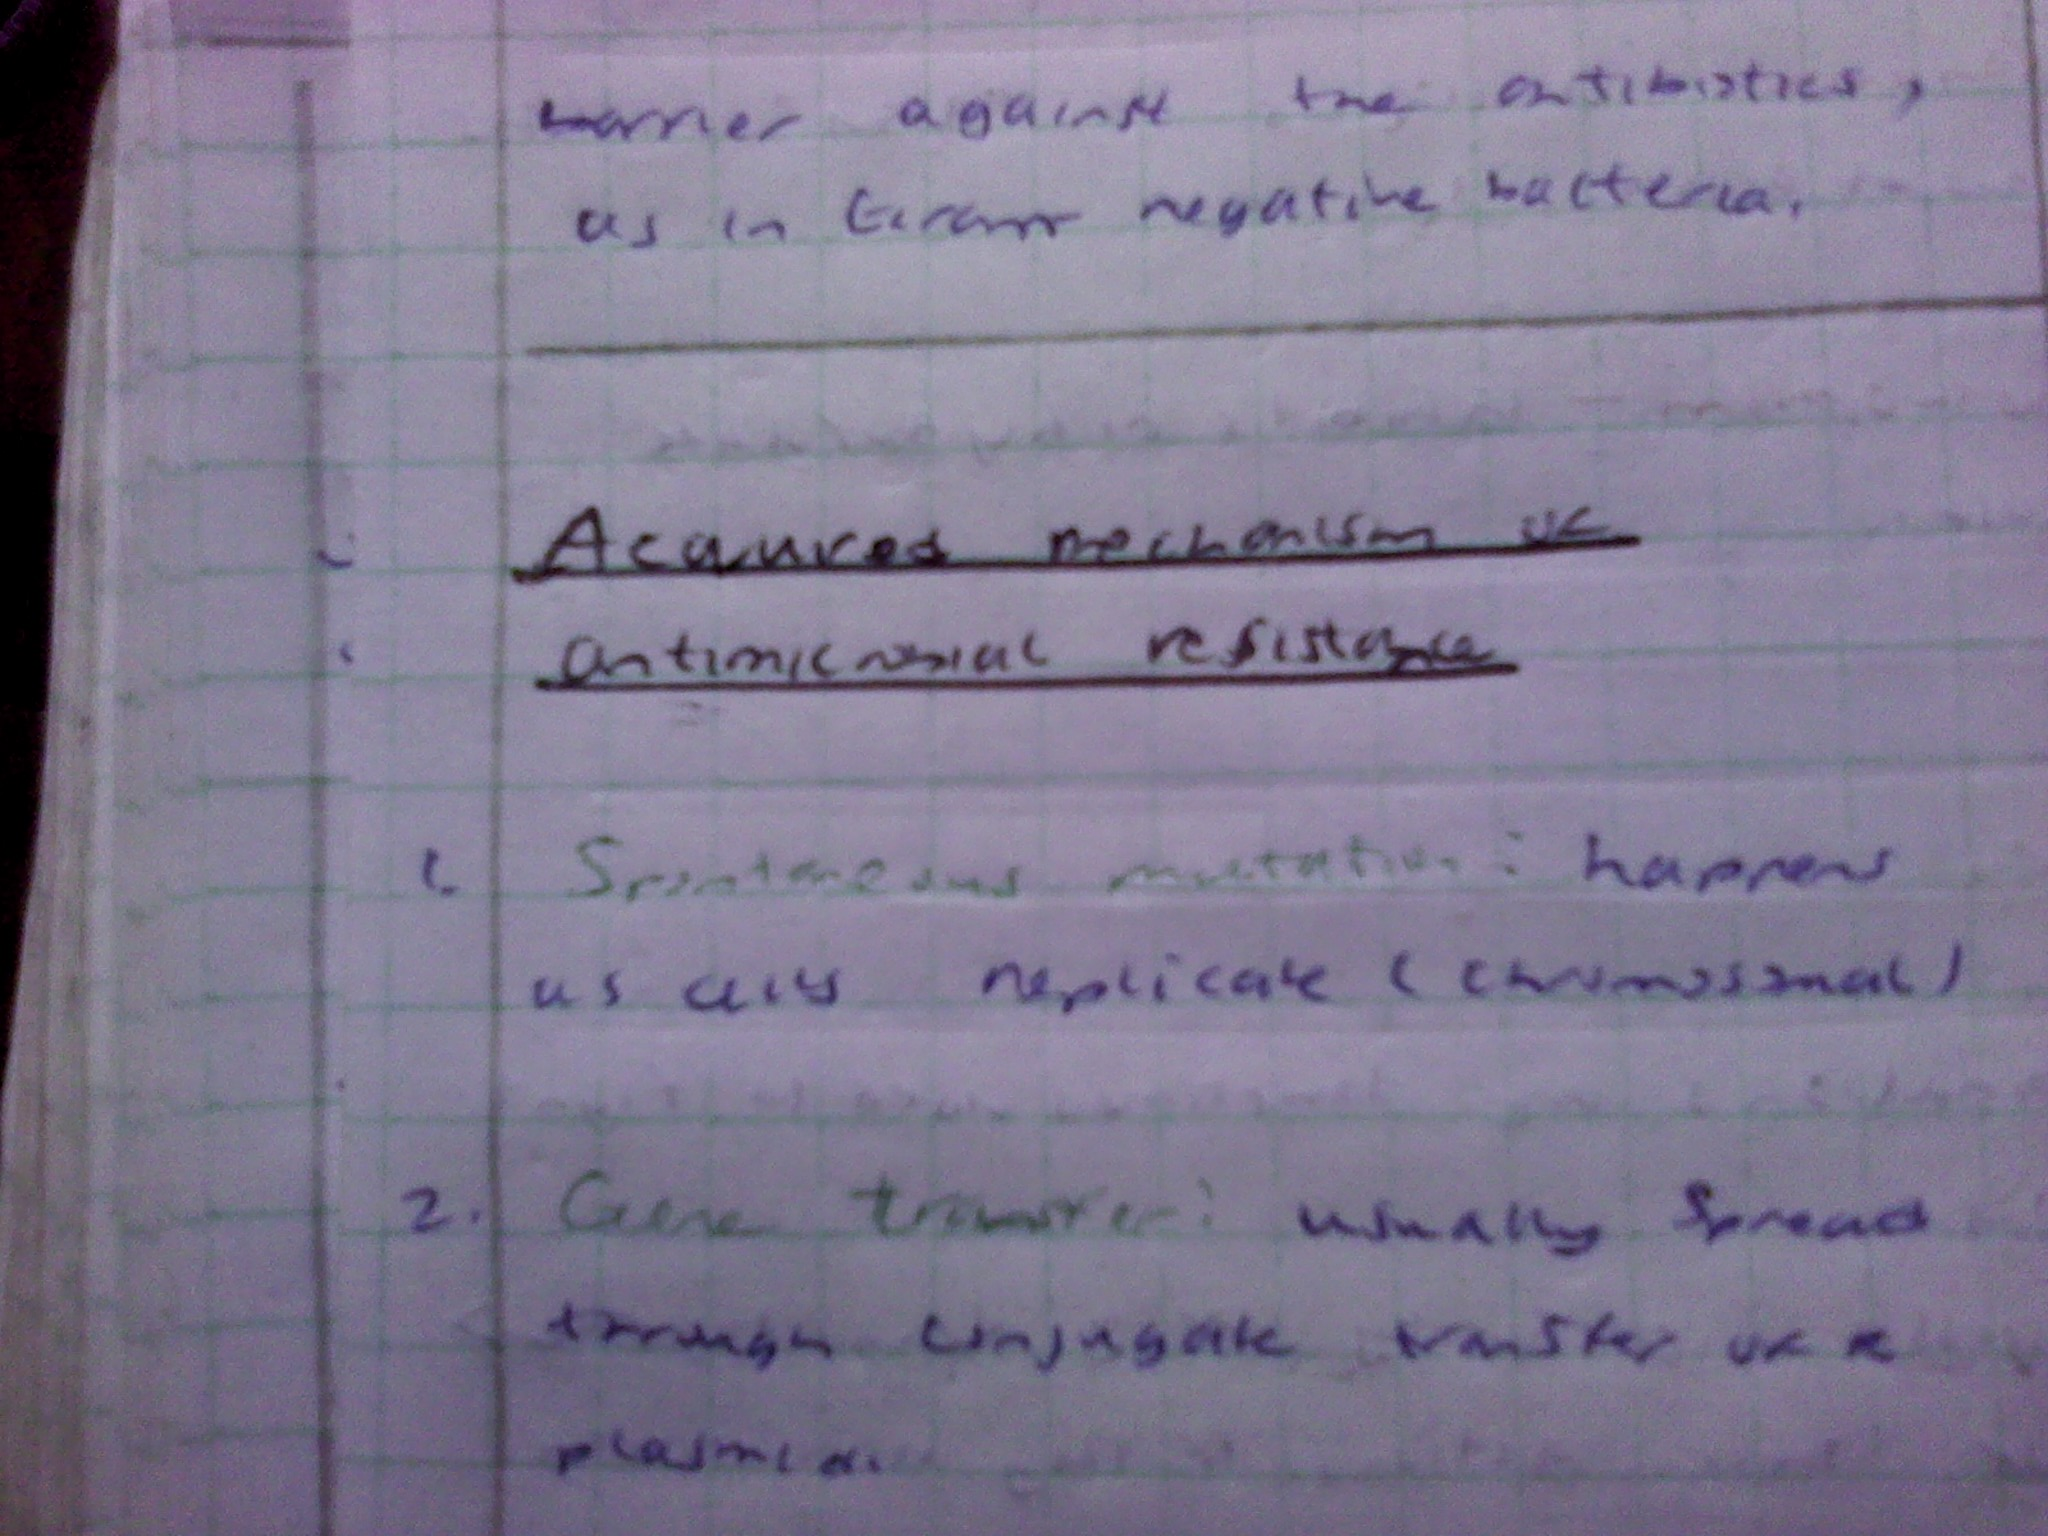 barrier against the antibiotics,
as in Gram negative bacteria.
Acquired mechanism of
antimicrobial resistance
1. Spontaneous mutation: happens
as cells replicate (chromosomal)
2. Gene transfer: usually spread
through conjugate transfer of a
plasmid.